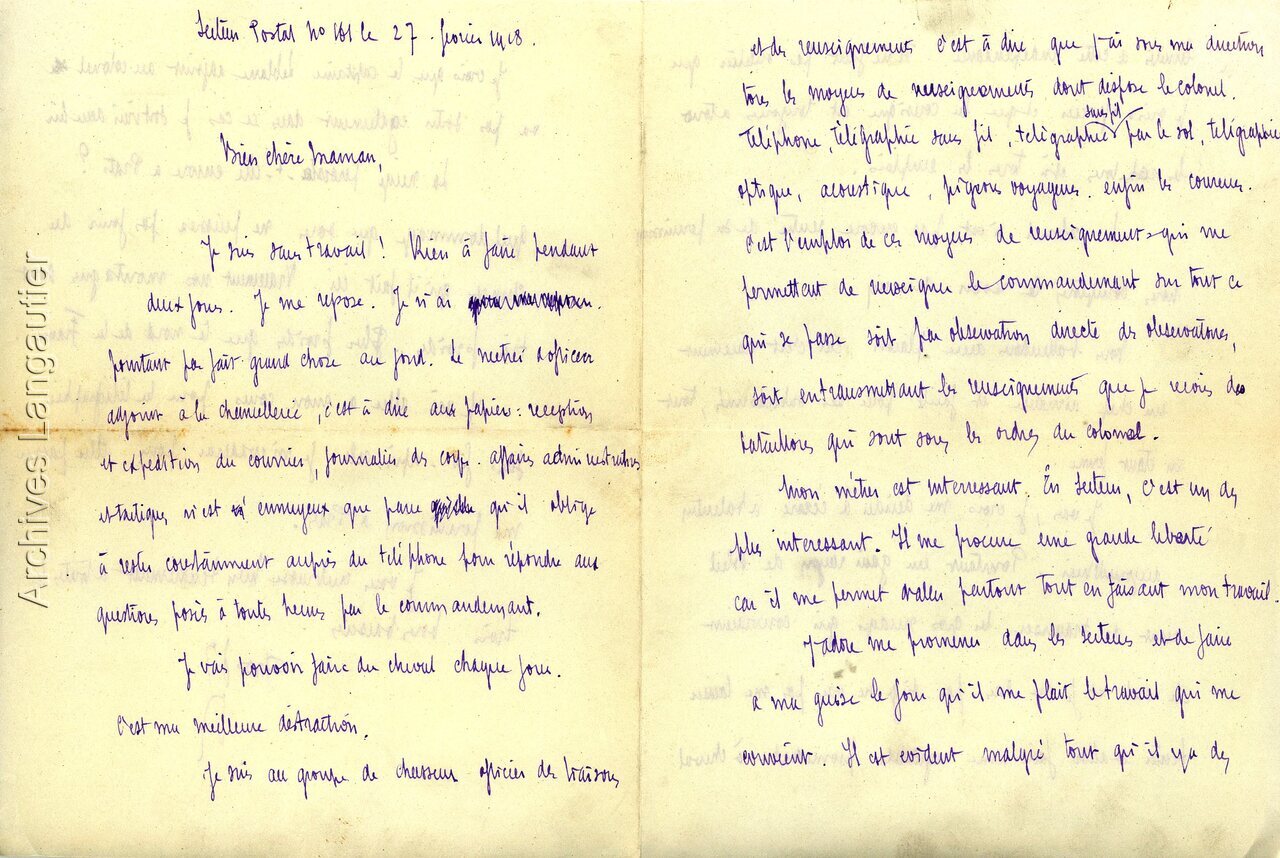 Secteur Postal No 161 le 27 février 1918.
Bien chère Maman,
Je suis sans travail ! Rien à faire pendant
deux jours. Je me repose. Je n'ai
pourtant pas fait grand chose au fond. Le métier d'officier
adjoint à la chancellerie, c'est à dire aux papiers : réception
et expédition du courrier, journaliers des corps. affaires administratives
et tactiques n'est si ennuyeux que parce qu'il oblige
à rester constamment auprès du téléphone pour répondre aux
questions posées à toutes heures par le commandemant.
Je vais pouvoir faire du cheval chaque jour.
C'est ma meilleure distraction.
Je suis au groupe de chasseurs officier des liaisons
et des renseignements c'est à dire que j'ai sous ma direction
tous les moyens de renseignements dont dispose le colonel.
Téléphone, télégraphie sans fil, télégraphie sans fil par le sol, télégraphie
optique, acoustique, pigeons voyageurs enfin les coureurs.
C'est l'emploi de ces moyens de renseignements qui me
permettent de renseigner le commandemant sur tout ce
qui se passe soit par observation directe des observatoires,
soit en transmettant les renseignements que je reçois des
bataillons qui sont sous les ordres du colonel.
Mon métier est interessant. En secteur, c'est un des
plus interessant. Il me procure une grande liberté
car il me permet d'aller partout tout en faisant mon travail.
J'adore me promener dans les secteurs et de faire
à ma guise le jour qu'il me plait le travail qui me
convient. Il est evident malgré tout qu'il y a des
Archives Langautier